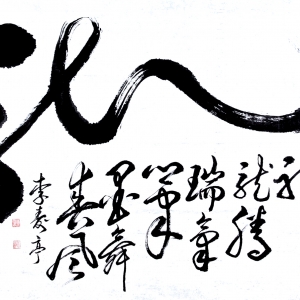 龍騰
瑞氣
筆
墨舞
春風
李
亭